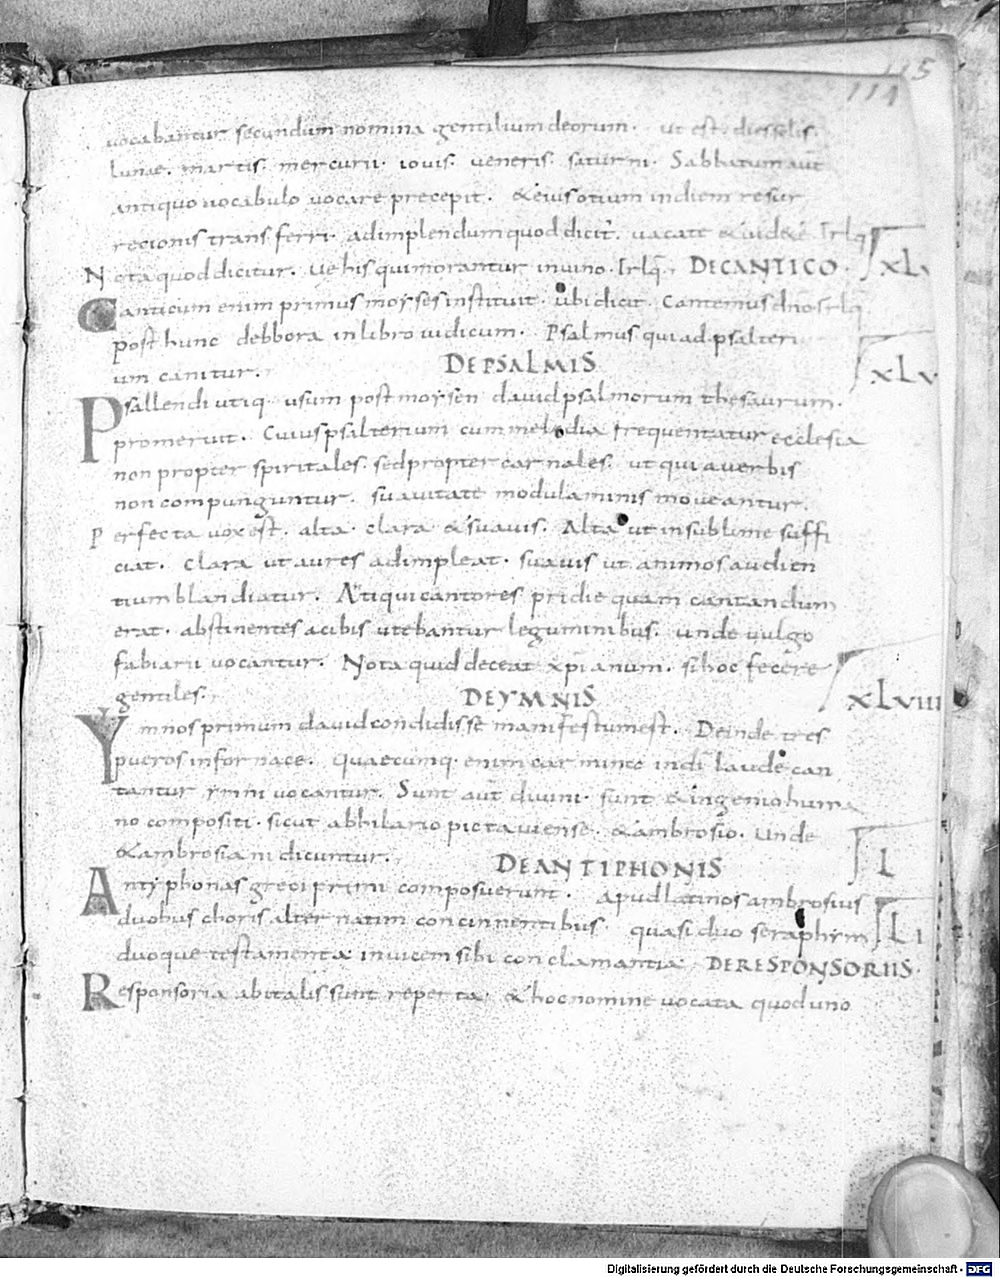 115
114
uocabantur secundum nomina gentilium deorum. ut est. dies solis.
lunae. martis. mercurii. iouis. ueneris. saturni. Sabbatum aut̄
antiquo uocabulo uocare precepit. & eius otium in diem resur
recionis transferri. adimplendum quod dicit̄. uacate & uid&e. Irlq̄
Nota quod dicitur. Ue his qui morantur in uino. Irlq̄. DE CANTICO
XLV
Canticum enim primus moyses instituit. ubi dicit. Cantemus dn̄o. Irlq̄.
post hunc debbora in libro iudicum. Psalmus qui ad psalteri
um canitur. DE PSALMIS
XLV
Psallendi utiq. usum post moysen dauid psalmorum thesaurum.
promeruit. Cuius psalterium cum melodia frequentatur ecclesia
non propter spiritales. sed propter carnales. ut qui a uerbis
non compunguntur. suauitate modulaminis moueantur.
Perfecta uox est. alta. clara & suauis. Alta ut in sublime suffi
ciat. Clara ut aures adimpleat. suauis ut animos audien
tium blandiatur. Atiqui cantores pridie quam cantandum
erat. abstinentes a cibis utebantur leguminibus. unde uulgo
fabarii uocantur. Nota quid deceat xp̄ianum. si hoc fecere
gentiles. DE YMNIS
XLVIII
Ymnos primum dauid condidisse manifestum est. Deinde tres
pueros in fornace. Quaecumq. enim carmine in dī laude can
tantur ymni uocantur. Sunt aut̄ diuini. sunt & ingenio huma
no compositi. sicut ab hilario pictauiense. & ambrosio. Unde
& ambrosiani dicuntur. DE ANTIPHONIS
L
Antyphonas greci primi composuerunt. Apud latinos ambrosius
duobus choris alternatim concinnentibus. quasi duo seraphym
LI
duoque testamenta inuicem sibi conclamantia. DE RESPONSORIIS.
Responsoria ab italis sunt reperta. & hoc nomine uocata quod uno
Digitalisierung gefördert durch die Deutsche Forschungsgemeinschaft - DFG